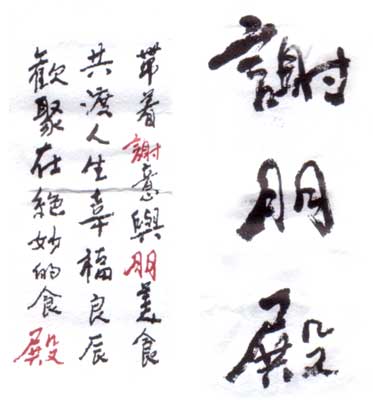 謝朋殿
帶着謝意與朋美食
共渡人生幸福良辰
歡聚在絕妙的食殿